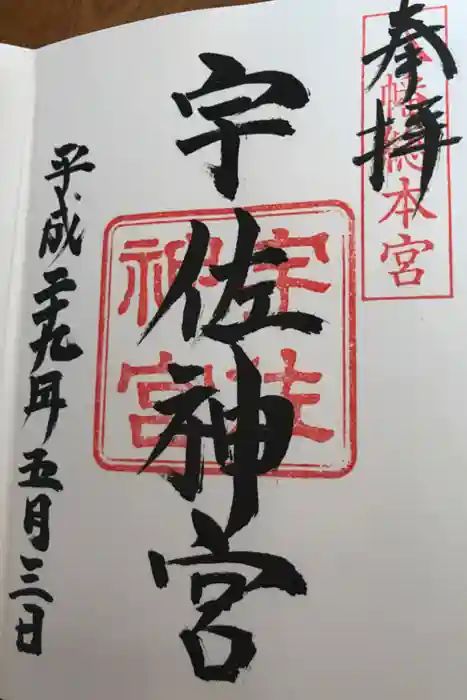 奉拝
八幡総本宮
宇佐神宮
宇佐
神宮
平成二十九年五月三日